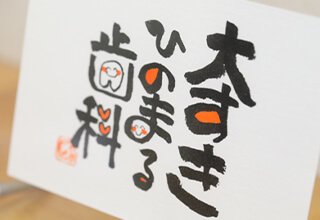 大すき
ひのまる
歯科